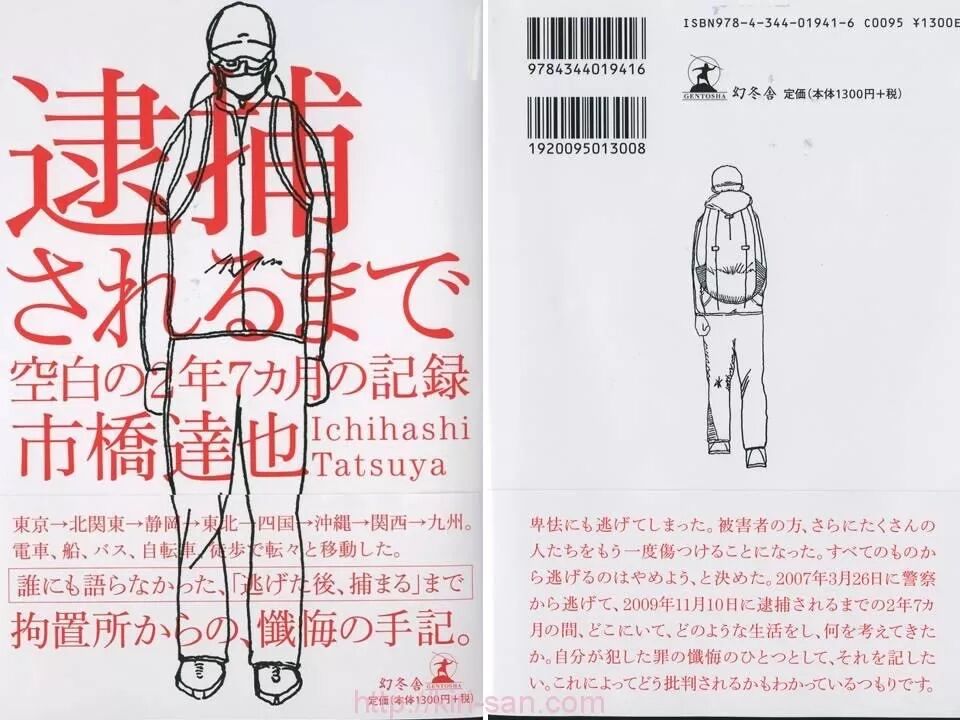 逮捕
されるまで
空白の2年7カ月の記録
市橋達也
Ichihashi
Tatsuya
東京→北関東→静岡→東北→四国→沖縄→関西→九州。
電車、船、バス、自転車、徒歩で転々と移動した。
誰にも語らなかった、「逃げた後、捕まる」まで
拘置所からの、懺悔の手記。
幻冬舎
GENTOSHA
定価(本体1300円+税)
ISBN978-4-344-01941-6 C0095 ¥1300E
9784344019416
GENTOSHA
幻冬舎 定価(本体1300円+税)
1920095013008
卑怯にも逃げてしまった。被害者の方、さらにたくさんの
人たちをもう一度傷つけることになった。すべてのものか
ら逃げるのはやめよう、と決めた。2007年3月26日に警察
から逃げて、2009年11月10日に逮捕されるまでの2年7カ
月の間、どこにいて、どのような生活をし、何を考えてきた
か。自分が犯した罪の懺悔のひとつとして、それを記した
い。これによってどう批判されるかもわかっているつもりです。
http://kin-san.com